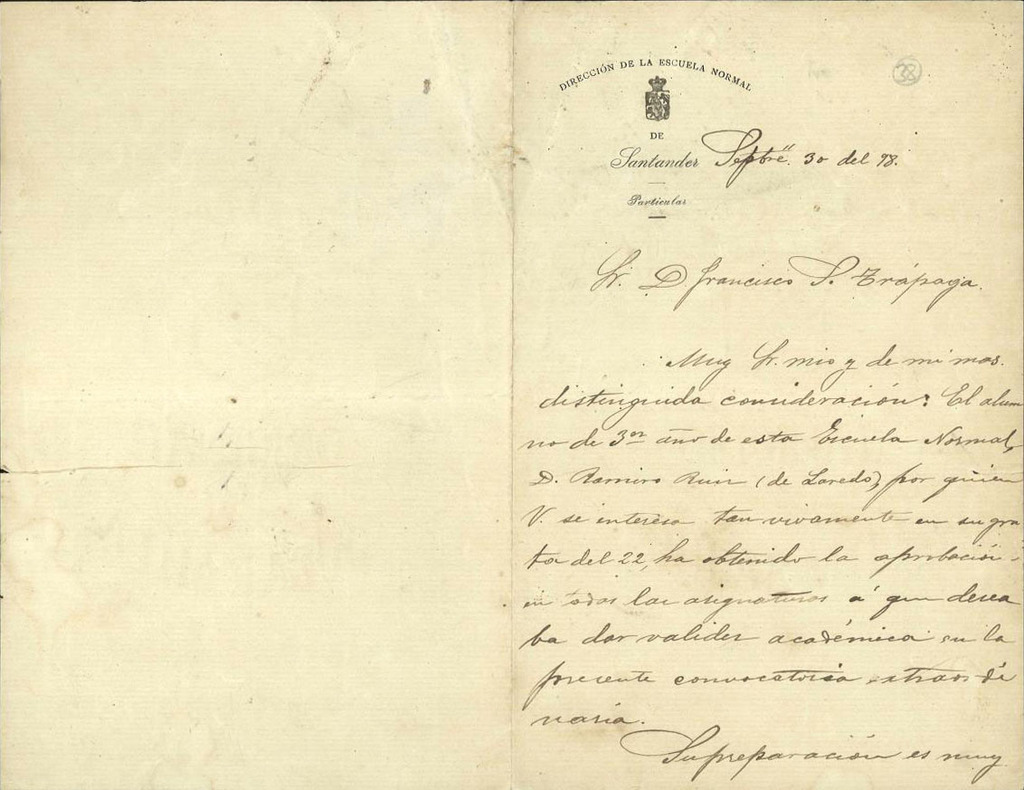 38
DIRECCIÓN DE LA ESCUELA NORMAL
DE
Santander Septbrẽ. 30 del 98.
Particular
Sr. D. Francisco S. Trápaga.
Muy Sr. mio y de mi mas
distinguida consideración: El alum
no de 3er año de esta Escuela Normal,
D. Ramiro Ruiz (de Laredo), por quien
V. se interesa tan vivamente en su gra
ta del 22, ha obtenido la aprobación
en todas las asignaturas á que desea
ba dar validez académica en la
presente convocatoria extraordi
naria.
Su preparación es muy